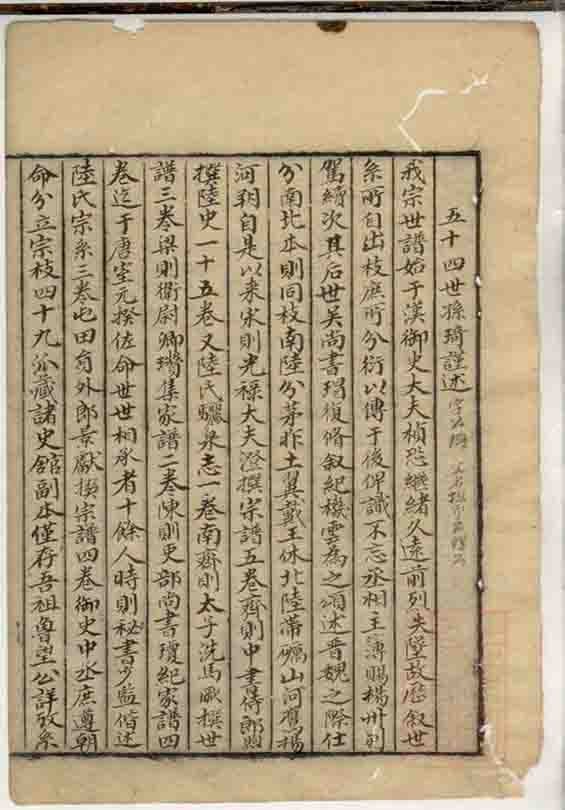 五十四世孫琦謹述
我宗世譜始于漢御史大夫楨恐繼緒久遠前列失墜故歷叙世
系所自出枝庶所分衍以傳于後俾識不忘丞相主簿賜楊州別
駕續次其后世吳尚書瑁復脩叙紀機雲為之頌述晋魏之際仕
分南北本則同枝南陸分茅胙土翼戴王休北陸帶礪山河鷹揚
河朔自是以来宋則光祿大夫澄撰宗譜五卷齊則中書侍郎
撰陸史一十五卷又陸氏驪泉志一卷南齊則太子洗馬撰世
譜三卷梁則衛尉卿瓚集家譜二卷陳則吏部尚書瓊紀家譜四
卷迄于唐室元揆佐命世世相承者十餘人時則秘書少監偕述
陸氏宗系三卷屯田員外郎景獻撰宗譜四卷御史中丞庶遵朝
命分立宗枝四十九派藏諸史館副本僅存吾祖魯望公詳攷系